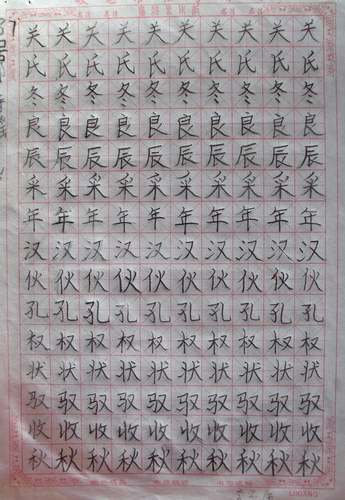 关关关关关关关关关关
氏氏氏氏氏氏氏氏氏氏
冬冬冬冬冬冬冬冬冬冬
良良良良良良良良良良
辰辰辰辰辰辰辰辰辰辰
采采采采采采采采采采
年年年年年年年年年年
汉汉汉汉汉汉汉汉汉汉
伙伙伙伙伙伙伙伙伙伙
孔孔孔孔孔孔孔孔孔孔
权权权权权权权权权权
状状状状状状状状状状
驭驭驭驭驭驭驭驭驭驭
收收收收收收收收收收
秋秋秋秋秋秋秋秋秋秋